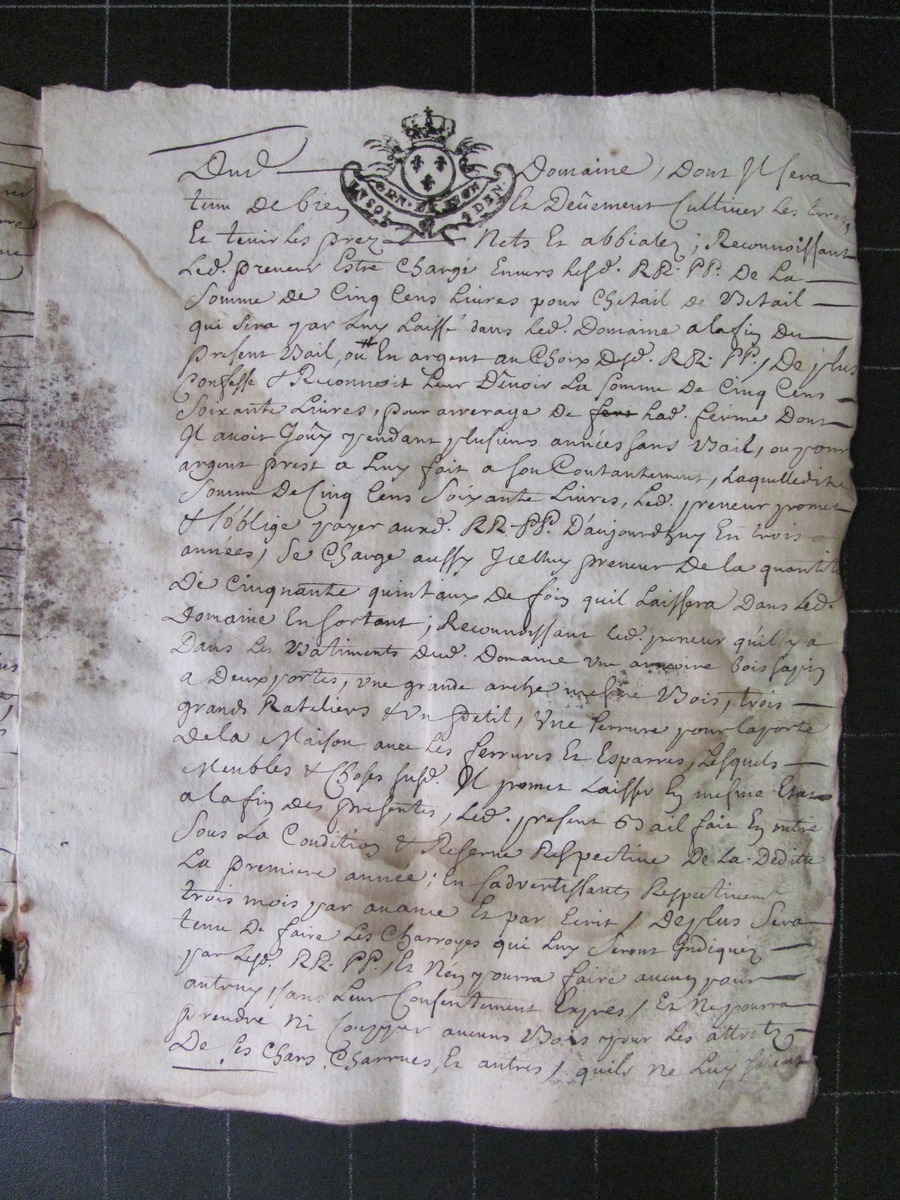 Dud. Domaine, Dont Il sera
tenu de bien Et Deüement Cultiver les terres,
Et tenir les prez Nets Et abbialez; Reconnoissant
Led. preneur Estre Chargé Envers lesd. RR. PP. De La
Somme de Cinq Cens Livres pour Chetail de Betail
qui Sera par Luy Laissé dans Led. Domaine a la fin du
Present Bail, ou En argent au Choix Desd. RR. PP., De plus
Confesse & Reconnoit Leur D'evoir La somme De Cinq Cens
Soixante Livres, pour arrerage De lad. ferme Dont
Il avoit Joüy pendant plusieurs années sans Bail, ou pour
argent prest a Luy fait a son Contantement, Laquelle dite
Somme De Cinq Cens Soixante Livres, Led. preneur promet
& s'oblige payer ausd. RR. PP. D'aujourdhuy En trois
années, Se Charge aussy Icelluy preneur De la quantité
De Cinquante quintaux De foin quil Laissera Dans Led.
Domaine En sortant; Reconnoissant led. preneur quil y a
Dans Les Batiments Dud. Domaine Une armoire bois sapin
a Deux portes, Une grande arche mesme Bois, trois
grands Rateliers & Un petit, Une serrure pour la porte
De la Maison avec Les ferrures Et Esparres, Lesquels
Meubles & Choses susd. Il promet Laisser En mesme Etat
a la fin des presentes, Led. present Bail fait En outre
Sous La Condition & Reserve Respective De La Deditte
La premiere année; En sadvertissants Respectivement
trois mois par avance Et par Ecrit / De plus Sera
tenu De faire Les Charroyes qui Luy Seront Indiquez
par Lesd. RR. PP., Et N'en pourra faire aucun pour
autruy, sans Leur Consentement Exprés / Et Ne pourra
prendre Ni Coupper aucuns Bois pour Les attraits
De ses Chars, Charrues, Et autres / quils ne Luy soient